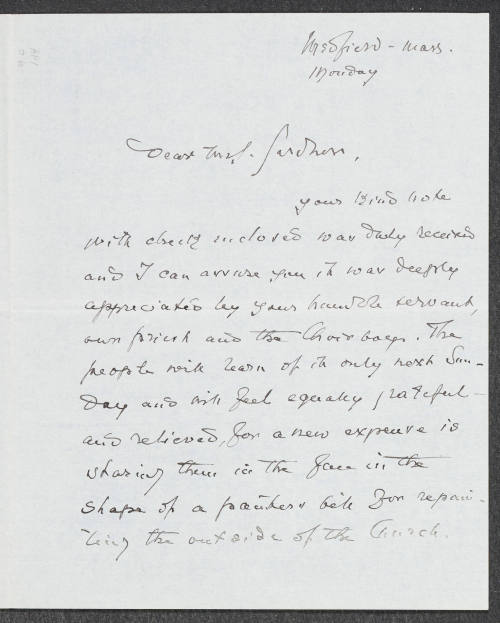 Medfield - Mass.
Monday
Dear Mrs. Gardner,
your kind note
with check inclosed was duly received
and I can assure you it was deeply
appreciated by your humble servant,
our priest and the Choir boys. The
people will learn of it only next Sun-
day and will feel equally grateful -
and relieved, for a new expense is
staring them in the face in the
shape of a painters bill for repain-
ting the outside of the Church.